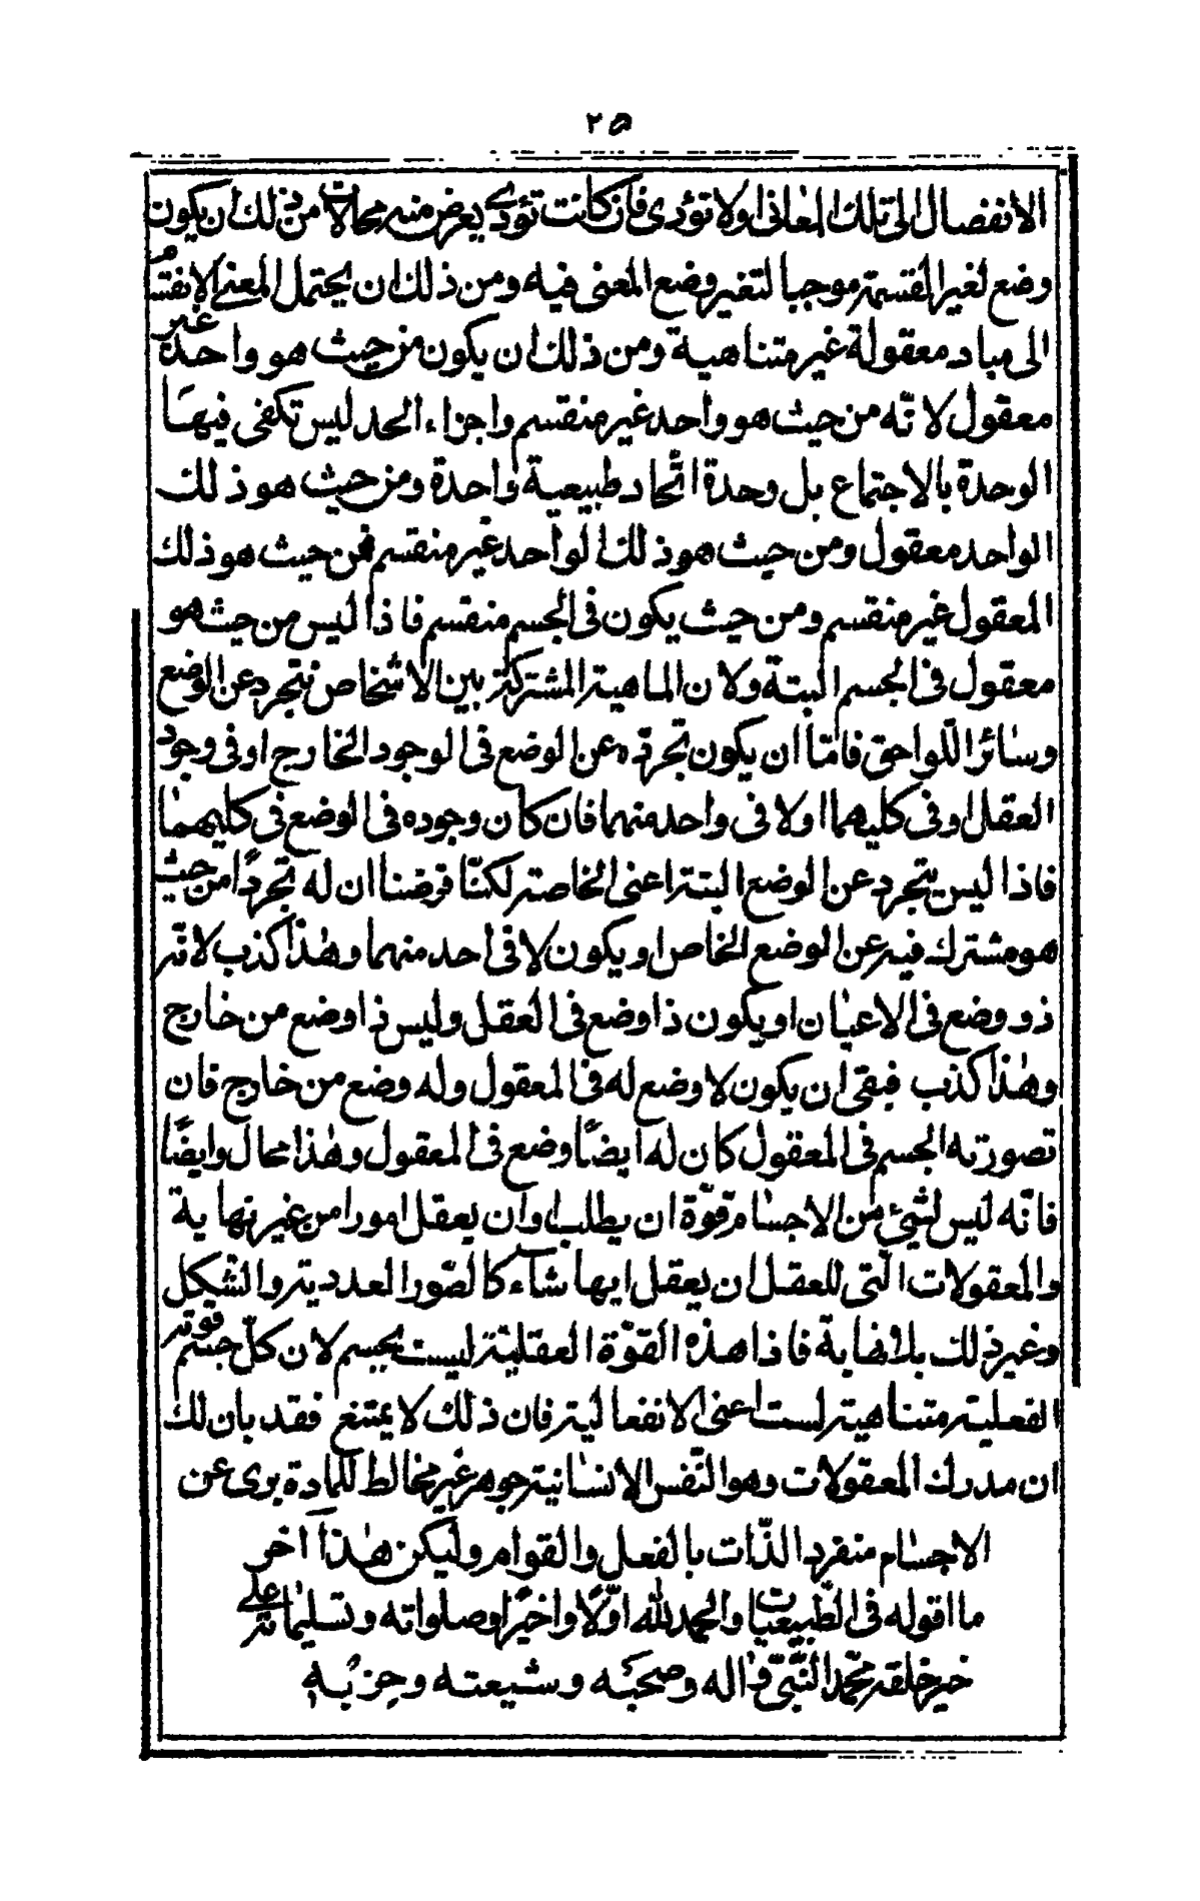 ٢٥
الانفصال الى تلك المعانى او لا تؤدى فان كانت تؤدى يعرض منه محالات من ذلك ان يكون
وضع لغير القسمة موجبا لتغير وضع المعنى فيه ومن ذلك ان يحتمل المعنى الانقسام
الى مباد معقولة غير متناهية ومن ذلك ان يكون من حيث هو واحد غير
معقول لانّه من حيث هو واحد غير منقسم واجزاء الحد ليس تكفى فيها
الوحدة بالاجتماع بل وحدة اتّحاد طبيعية واحدة ومن حيث هو ذلك
الواحد معقول ومن حيث هو ذلك الواحد غير منقسم فمن حيث هو ذلك
المعقول غير منقسم ومن حيث يكون فى الجسم منقسم فاذا ليس من حيث هو
معقول فى الجسم البتة ولان الماهية المشتركة بين الاشخاص تتجرد عن الوضع
وسائر اللّواحق فامّا ان يكون تجرّده عن الوضع فى الوجود الخارج او فى وجود
العقل او فى كليهما او لا فى واحد منهما فان كان وجوده فى الوضع فى كليهما
فاذا ليس يتجرد عن الوضع البتة اعنى الخاصة لكنّا فرضنا ان له تجردًا من حيث
هو مشترك فيه عن الوضع الخاص او يكون لا فى احد منهما وهذا كذب لانّه
ذو وضع فى الاعيان او يكون ذا وضع فى العقل وليس ذا وضع من خارج
وهذا كذب فبقى ان يكون لا وضع له فى المعقول وله وضع من خارج فان
تصورته الجسم فى المعقول كان له ايضًا وضع فى المعقول وهذا محال وايضًا
فانّه ليس لشئ من الاجسام قوّة ان يطلب او ان يعقل امورا من غير نهاية
والمعقولات الّتى للعقل ان يعقل ايها شآء كالصّور العددية والشكل
وغير ذلك بلا نهاية فاذا هذه القوّة العقليّة ليست بجسم لان كلّ جسم قوته
الفعلية متناهية لست اعنى الانفعالية فان ذلك لا يمتنع فقد بان لك
ان مدرك المعقولات وهو النّفس الانسانية جوهر غير مخالط للمادة برى عن
الاجسام منفرد الذّات بالفعل والقوام وليكن هذا آخر
ما اقوله فى الطّبيعيّات والحمد لله اوّلًا واخيرًا وصلواته وتسليماته على
خير خلقه محمّد النّبىّ واله وصحبه وشيعته وحزبه